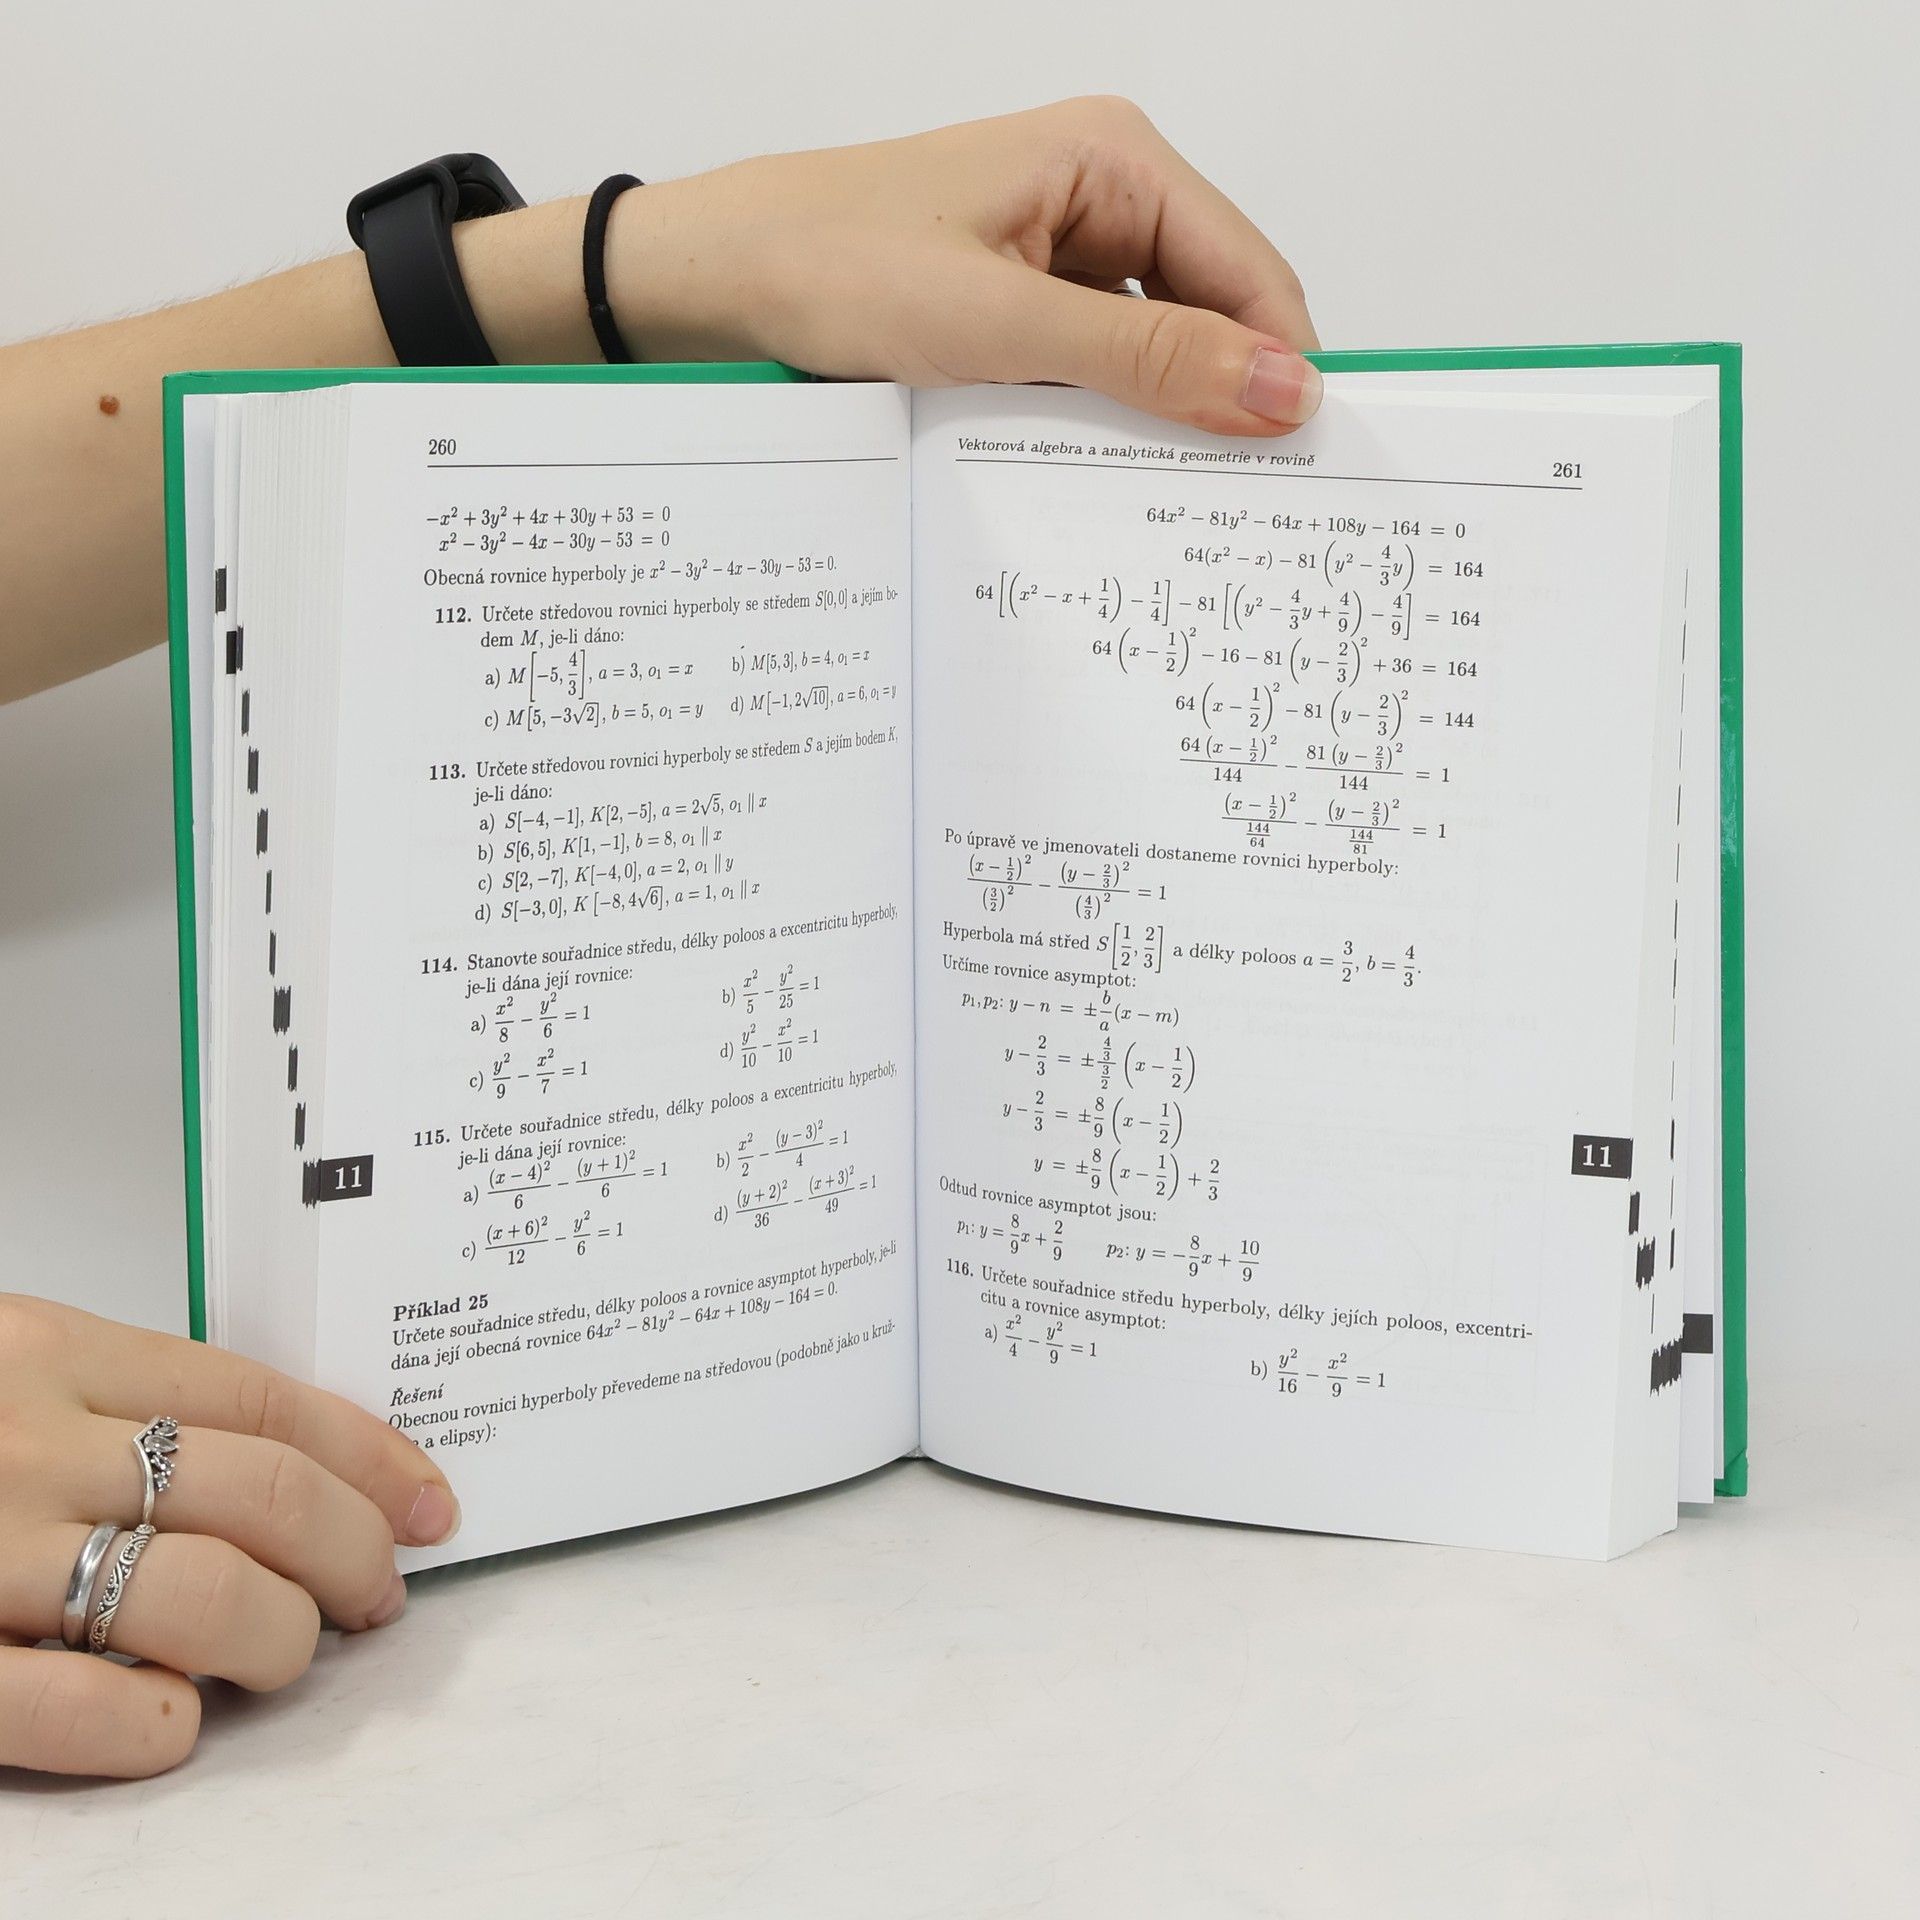 260
−x² + 3y² + 4x + 30y + 53 = 0
x² − 3y² − 4x − 30y − 53 = 0
Obecná rovnice hyperboly je x² − 3y² − 4x − 30y − 53 = 0.
112. Určete středovou rovnici hyperboly se středem S[0,0] a jejím bo-
dem M, je-li dáno:
a) M[−5, 4/3], a = 3, o₁ = x b) M[5,3], b = 4, o₁ = x
c) M[5, −3√2], b = 5, o₁ = y d) M[−1, 2√10], a = 6, o₁ = y
113. Určete středovou rovnici hyperboly se středem S a jejím bodem K,
je-li dáno:
a) S[−4, −1], K[2, −5], a = 2√5, o₁ ∥ x
b) S[6, 5], K[1, −1], b = 8, o₁ ∥ x
c) S[2, −7], K[−4, 0], a = 2, o₁ ∥ y
d) S[−3, 0], K[−8, 4√6], a = 1, o₁ ∥ x
114. Stanovte souřadnice středu, délky poloos a excentricitu hyperboly,
je-li dána její rovnice:
a) x²/8 − y²/6 = 1 b) x²/5 − y²/25 = 1
c) y²/9 − x²/7 = 1 d) y²/10 − x²/10 = 1
115. Určete souřadnice středu, délky poloos a excentricitu hyperboly,
je-li dána její rovnice:
a) (x − 4)²/6 − (y + 1)²/6 = 1 b) x²/2 − (y − 3)²/4 = 1
c) (x + 6)²/12 − y²/6 = 1 d) (y + 2)²/36 − (x + 3)²/49 = 1
11
Příklad 25
Určete souřadnice středu, délky poloos a rovnice asymptot hyperboly, je-li
dána její obecná rovnice 64x² − 81y² − 64x + 108y − 164 = 0.
Řešení
Obecnou rovnici hyperboly převedeme na středovou (podobně jako u kruž-
a elipsy):
Vektorová algebra a analytická geometrie v rovině 261
64x² − 81y² − 64x + 108y − 164 = 0
64(x² − x) − 81(y² − 4/3 y) = 164
64[(x² − x + 1/4) − 1/4] − 81[(y² − 4/3 y + 4/9) − 4/9] = 164
64(x − 1/2)² − 16 − 81(y − 2/3)² + 36 = 164
64(x − 1/2)² − 81(y − 2/3)² = 144
64(x − 1/2)²/144 − 81(y − 2/3)²/144 = 1
(x − 1/2)²/(144/64) − (y − 2/3)²/(144/81) = 1
Po úpravě ve jmenovateli dostaneme rovnici hyperboly:
(x − 1/2)²/(3/2)² − (y − 2/3)²/(4/3)² = 1
Hyperbola má střed S[1/2, 2/3] a délky poloos a = 3/2, b = 4/3.
Určíme rovnice asymptot:
p₁, p₂: y − n = ± b/a (x − m)
y − 2/3 = ± (4/3)/(3/2) (x − 1/2)
y − 2/3 = ± 8/9 (x − 1/2)
y = ± 8/9 (x − 1/2) + 2/3
Odtud rovnice asymptot jsou:
p₁: y = 8/9 x + 2/9 p₂: y = −8/9 x + 10/9
116. Určete souřadnice středu hyperboly, délky jejích poloos, excentri-
citu a rovnice asymptot:
a) x²/4 − y²/9 = 1 b) y²/16 − x²/9 = 1
11